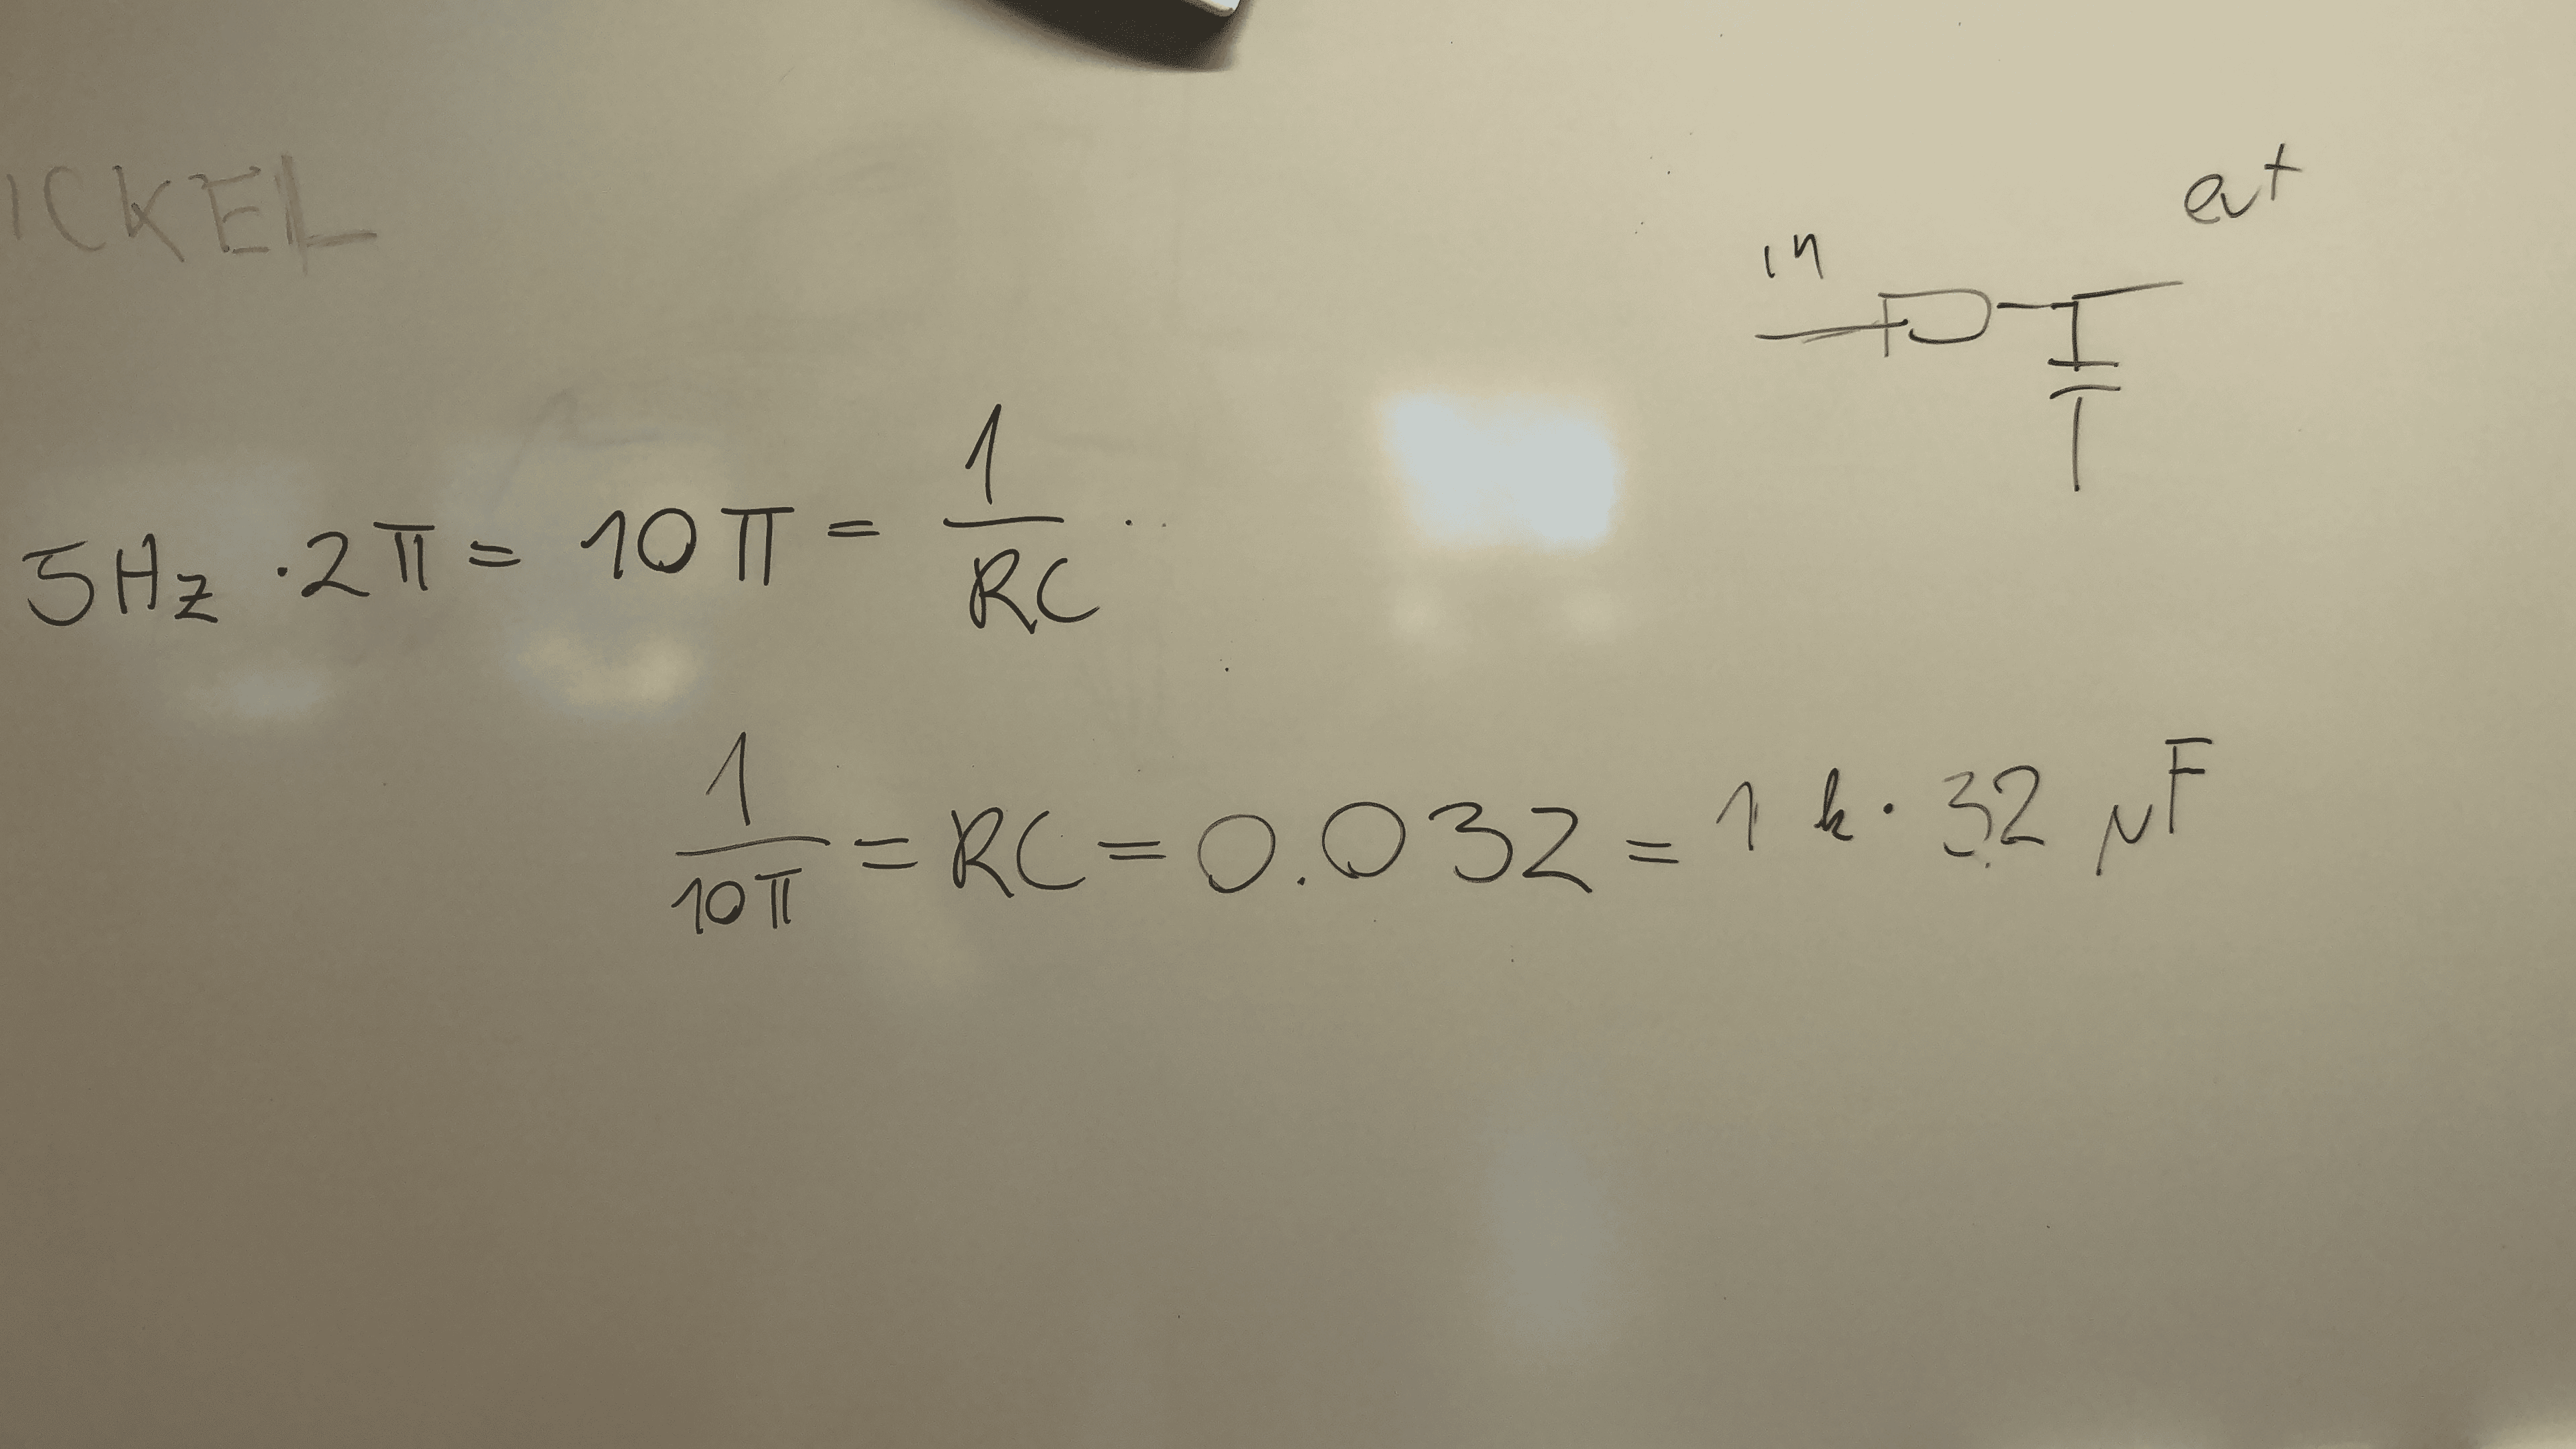 ICKEL
in out
5Hz · 2π = 10π = 1/RC
1/10π = RC = 0.032 = 1k · 32 μF